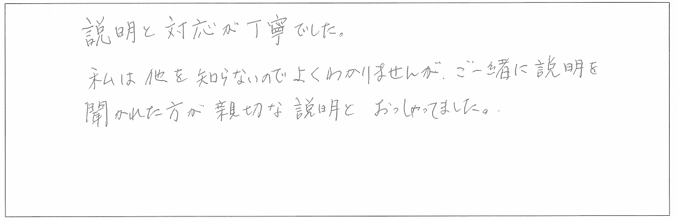 説明と対応が丁寧でした。
私は他を知らないのでよくわかりませんが、ご一緒に説明を
聞かれた方が親切な説明と おっしゃってました。